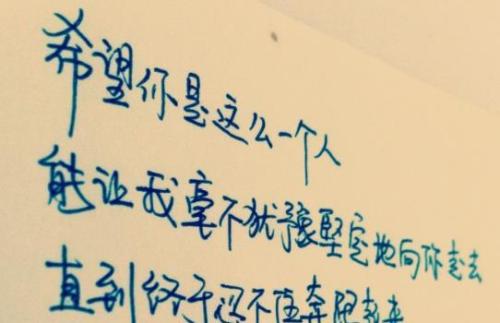 希望你是这么一个人
能让我毫不犹豫坚定地向你走去
直到终于忍不住奔跑起来